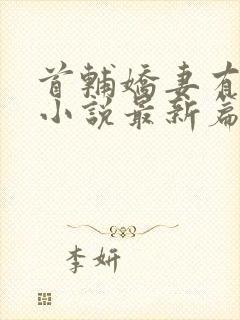 首輔嬌妻有
小說最新扁
李妍